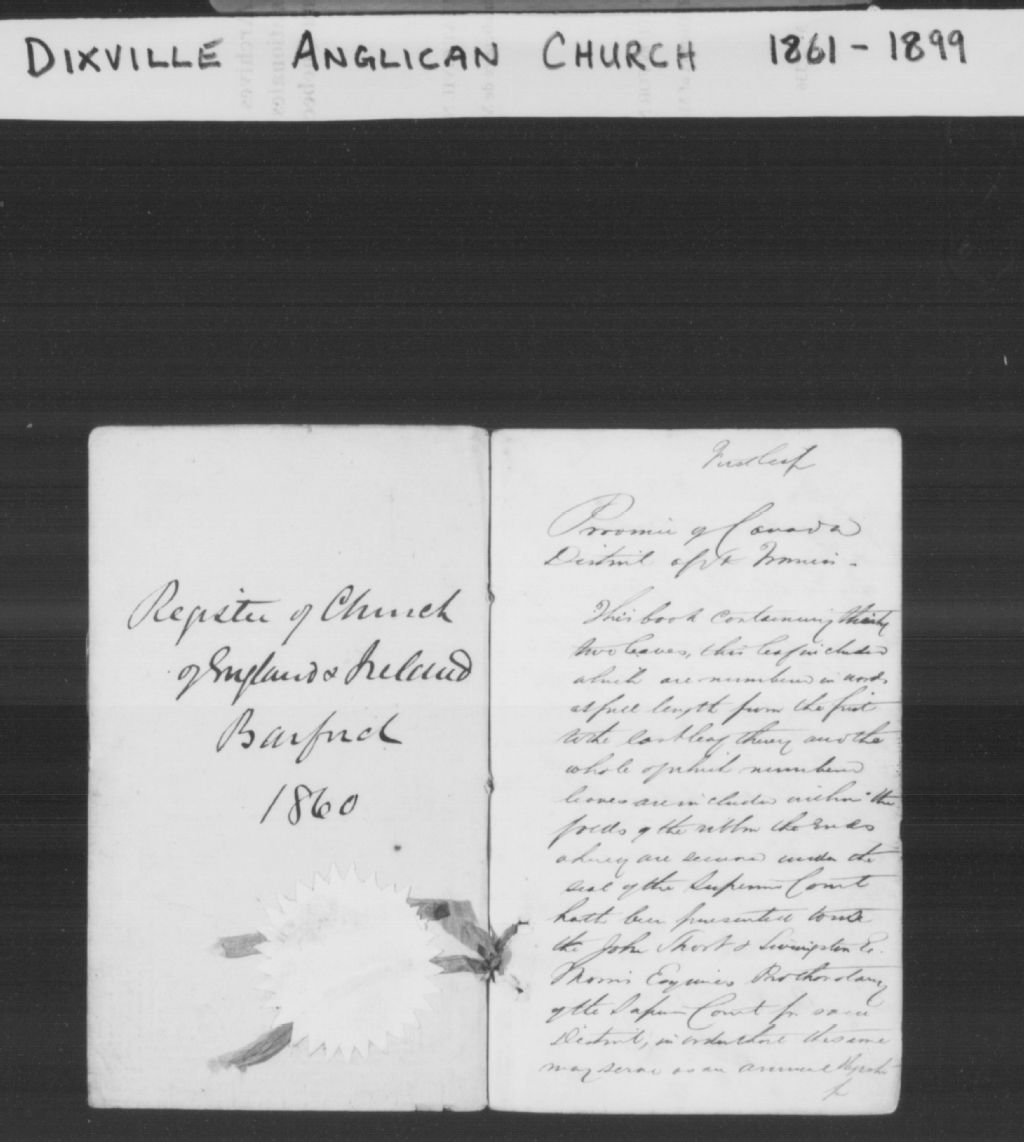 DIXVILLE ANGLICAN CHURCH 1861-1899
Register of Church
of England & Ireland
Barford
1860
First leaf
Province of Canada
District of St Francis.
This book containing thirty
two leaves, this leaf included
which are numbered in words
at full length from the first
to the last leaf thereof and the
whole of which numbered
leaves are included within the
folds of the ribbon the ends
whereof are secured under the
seal of the Superior Court
hath been presented to us
the John Short & Livingston E.
Morris Esquires Prothonotary
of the Superior Court for said
District, in order that the same
may serve as an annual Register